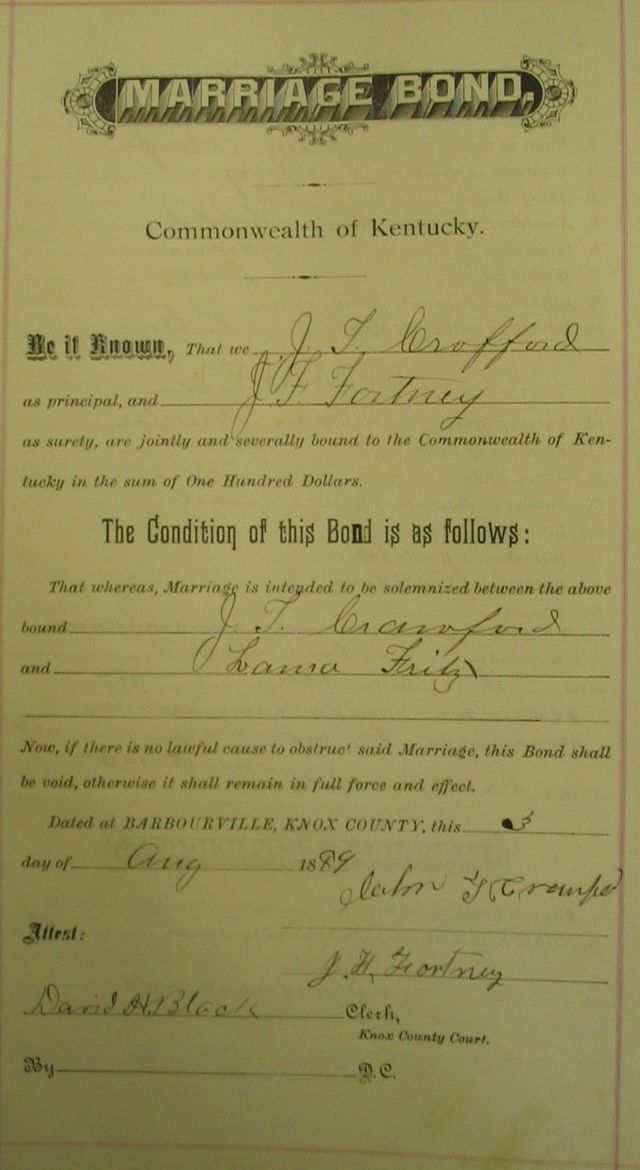 MARRIAGE BOND.
Commonwealth of Kentucky.
Be it Known, That we J. T. Crofford
as principal, and J. F. Fortney
as surety, are jointly and severally bound to the Commonwealth of Ken-
tucky in the sum of One Hundred Dollars.
The Condition of this Bond is as follows:
That whereas, Marriage is intended to be solemnized between the above
bound J. T. Crawford
and Laura Fritz
Now, if there is no lawful cause to obstruct said Marriage, this Bond shall
be void, otherwise it shall remain in full force and effect.
Dated at BARBOURVILLE, KNOX COUNTY, this 3
day of Aug 1889
John T
Attest:
J. F. Fortney
David H. Black Clerk,
Knox County Court.
By D.C.